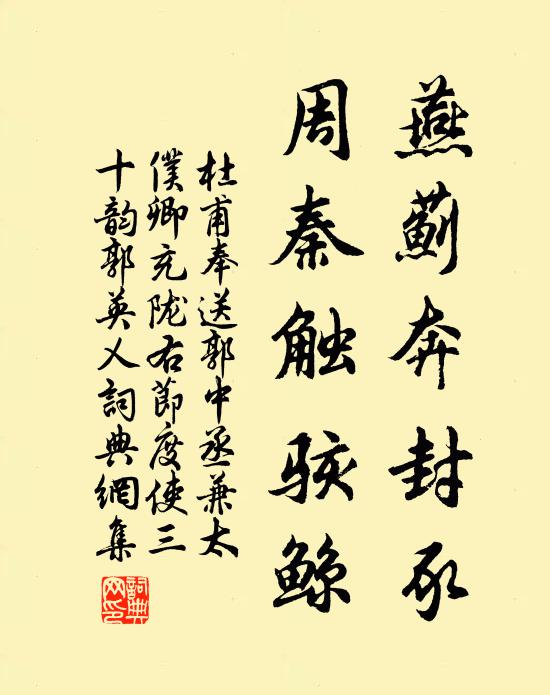 燕薊奔封豕
周秦触骇鲸
杜甫奉送郭中丞兼太
僕卿充陇右節度使三
十韵郭英乂詞典網集
詞典
网印